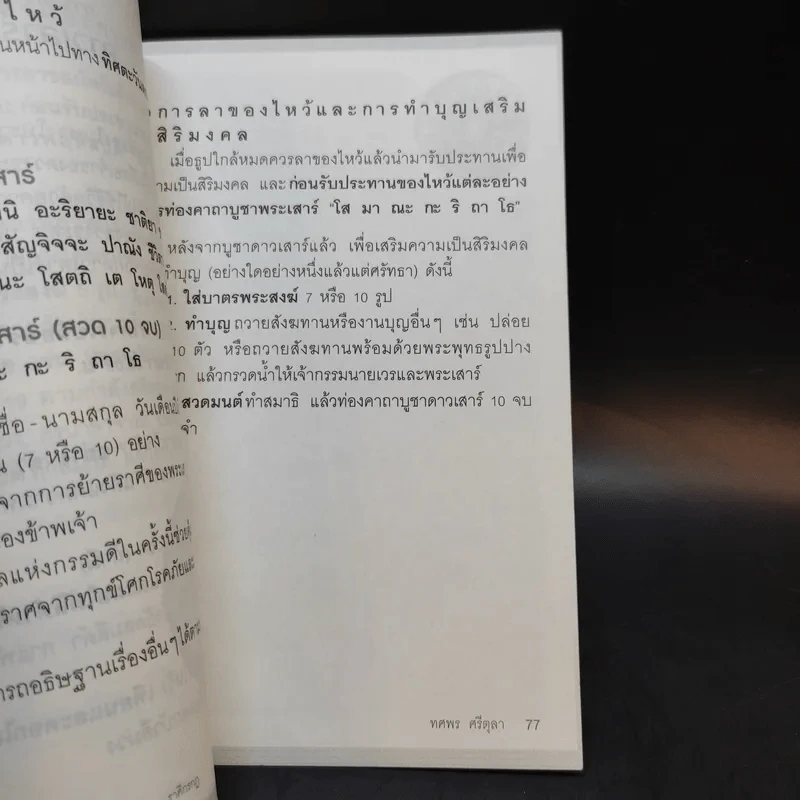 ไหว้
นหน้าไปทางทิศตะวัน
สาร์
นิ อะริยายะ ชาติยา
สัญจิจจะ ปาณัง ชีวิต
นะ โสตถิ เต โหตุ
สาร์ (สวด 10 จบ)
ะ กะ ริ ถา โธ
ชื่อ-นามสกุล วันเดือนปี
น (7 หรือ 10) อย่าง
จากการย้ายราศีของพระ
องข้าพเจ้า
ลแห่งกรรมดีในครั้งนี้ช่วย
ราศจากทุกข์โศกโรคภัยและ
ารถอธิษฐานเรื่องอื่นๆ ได้ตาม
การลาของไหว้และการทำบุญเสริม
สิริมงคล
เมื่อธูปใกล้หมดควรลาของไหว้แล้วนำมารับประทานเพื่อ
ามเป็นสิริมงคล และก่อนรับประทานของไหว้แต่ละอย่าง
รท่องคาถาบูชาพระเสาร์ "โส มา ณะ กะ ริ ถา โธ"
หลังจากบูชาดาวเสาร์แล้ว เพื่อเสริมความเป็นสิริมงคล
ทำบุญ (อย่างใดอย่างหนึ่งแล้วแต่ศรัทธา) ดังนี้
1. ใส่บาตรพระสงฆ์ 7 หรือ 10 รูป
2. ทำบุญถวายสังฆทานหรืองานบุญอื่นๆ เช่น ปล่อย
10 ตัว หรือถวายสังฆทานพร้อมด้วยพระพุทธรูปปาง
ก แล้วกรวดน้ำให้เจ้ากรรมนายเวรและพระเสาร์
สวดมนต์ทำสมาธิ แล้วท่องคาถาบูชาดาวเสาร์ 10 จบ
จำ
ทศพร ศรีตุลา 77